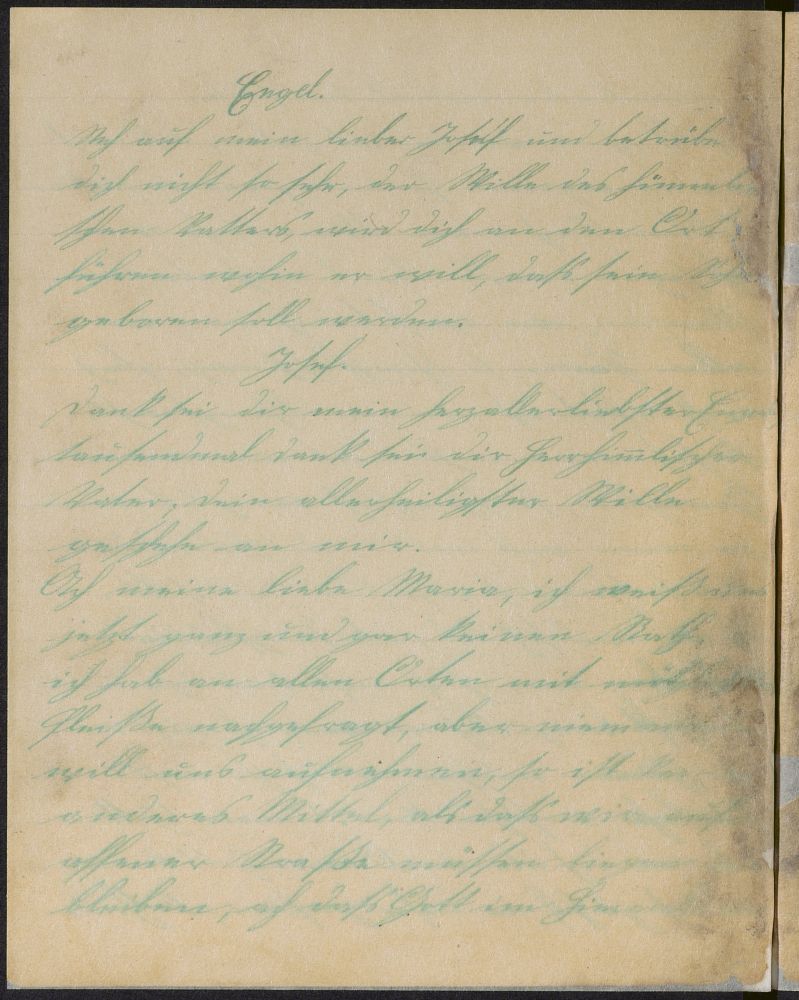 Engel.
Steh auf mein lieber Josef und betrübe
dich nicht so sehr, der Wille des himmli
schen Vatters, wird dich an den Ort
führen wohin er will, daß sein
geboren soll werden.
Josef.
Dank sei dir mein herzallerliebster Enge
tausendmal Dank sei dir Herr himlischer
Vater, dein allerheiligster Wille
geschehe an mir.
Ach meine liebe Maria, ich weiß
jetzt ganz und gar keinen Rath,
ich hab an allen Orten mit
Fleiße nachgefragt, aber niem
will uns aufnehmen, so ist
anderes Mittel, als daß wir auf
offener Straße müssen
bleiben, ach daß Gott im Him